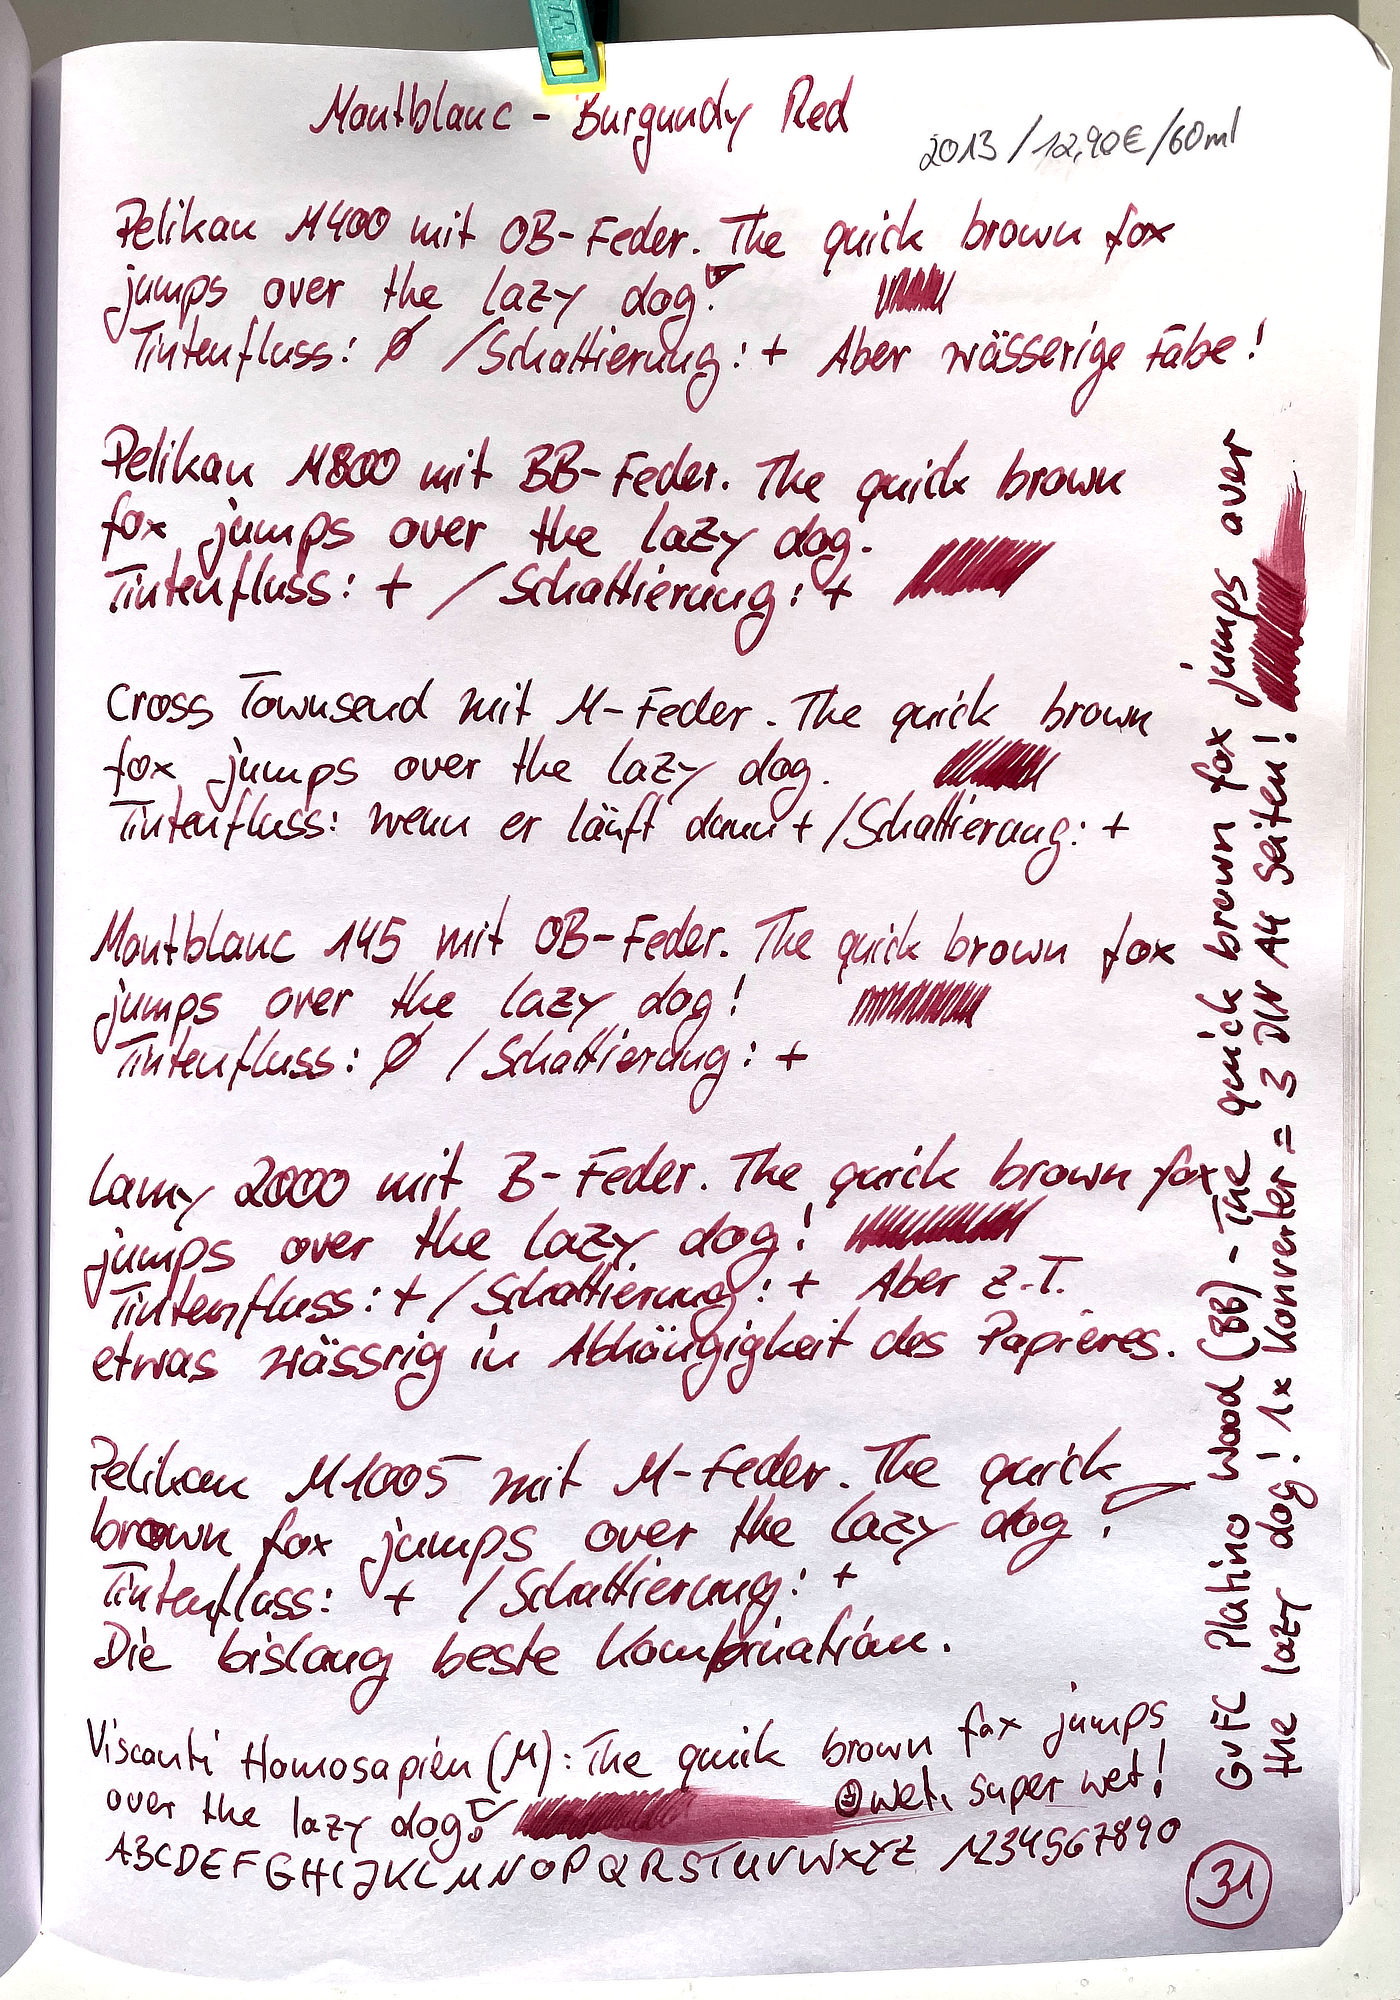 Montblanc - Burgundy Red
2013 / 12,90€ / 60ml
Pelikan M400 mit OB-Feder. The quick brown fox
jumps over the lazy dog!
Tintenfluss: Ø / Schattierung: + Aber wässerige Fabe!
Pelikan M800 mit BB-Feder. The quick brown
fox jumps over the lazy dog.
Tintenfluss: + / Schattierung: +
Cross Townsend mit M-Feder. The quick brown
fox jumps over the lazy dog.
Tintenfluss: wenn er läuft dann + / Schattierung: +
Montblanc 145 mit OB-Feder. The quick brown fox
jumps over the lazy dog!
Tintenfluss: Ø / Schattierung: +
Lamy 2000 mit B-Feder. The quick brown fox
jumps over the lazy dog!
Tintenfluss: + / Schattierung: + Aber z.T.
etwas wässrig in Abhängigkeit des Papieres.
Pelikan M1005 mit M-Feder. The quick
brown fox jumps over the lazy dog!
Tintenfluss: + / Schattierung: +
Die bislang beste Kombination.
Visconti Homosapien (M): The quick brown fox jumps
over the lazy dog! ☺wet, super wet!
ABCDEFGHIJKLMNOPQRSTUVWXYZ 1234567890
31
GvFC Platino Wood (BB) - The quick brown fox jumps over
the lazy dog! 1x Konverter = 3 DIN A4 Seiten!